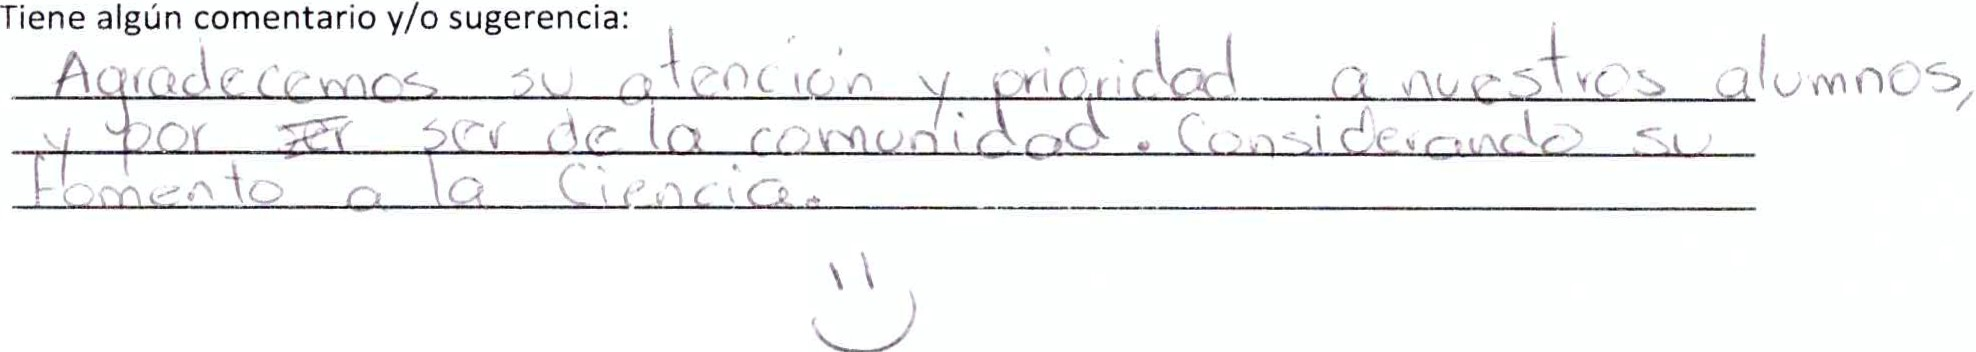 Tiene algún comentario y/o sugerencia:
Agradecemos su atención y prioridad a nuestros alumnos,
y por ser de la comunidad. Considerando su
Fomento a la Ciencia.